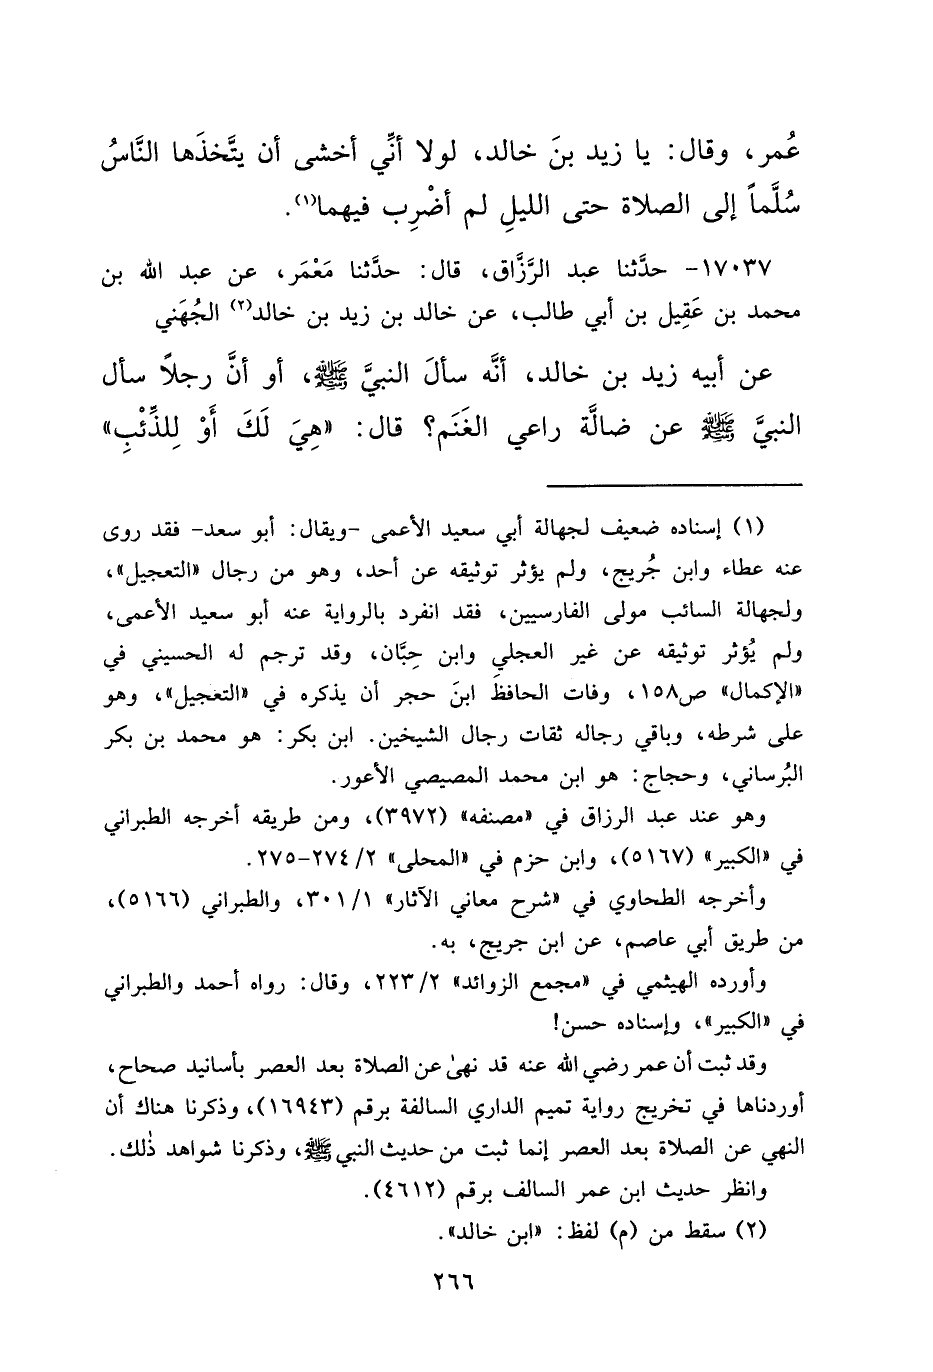 عُمر، وقال: يا زيد بنَ خالد، لولا أنِّي أخشى أن يتَّخذَها النَّاسُ
سُلَّماً إلى الصلاة حتى الليلِ لم أضْرِب فيهما(١).
١٧٠٣٧- حدَّثنا عبد الرَّزَّاق، قال: حدَّثنا مَعْمَر، عن عبد الله بن
محمد بن عَقِيل بن أبي طالب، عن خالد بن زيد بن خالد(٢) الجُهَني
عن أبيه زيد بن خالد، أنَّه سألَ النبيَّ ﷺ، أو أنَّ رجلاً سأل
النبيَّ ﷺ عن ضالَّة راعي الغَنَم؟ قال: «هِيَ لَكَ أَوْ لِلذِّئْبِ»
(١) إسناده ضعيف لجهالة أبي سعيد الأعمى -ويقال: أبو سعد- فقد روى
عنه عطاء وابن جُريج، ولم يؤثر توثيقه عن أحد، وهو من رجال «التعجيل»،
ولجهالة السائب مولى الفارسيين، فقد انفرد بالرواية عنه أبو سعيد الأعمى،
ولم يُؤثر توثيقه عن غير العجلي وابن حِبَّان، وقد ترجم له الحسيني في
«الإكمال» ص١٥٨، وفات الحافظَ ابنَ حجر أن يذكره في «التعجيل»، وهو
على شرطه، وباقي رجاله ثقات رجال الشيخين. ابن بكر: هو محمد بن بكر
البُرساني، وحجاج: هو ابن محمد المصيصي الأعور.
وهو عند عبد الرزاق في «مصنفه» (٣٩٧٢)، ومن طريقه أخرجه الطبراني
في «الكبير» (٥١٦٧)، وابن حزم في «المحلى» ٢/ ٢٧٤-٢٧٥.
وأخرجه الطحاوي في «شرح معاني الآثار» ١/ ٣٠١، والطبراني (٥١٦٦)،
من طريق أبي عاصم، عن ابن جريج، به.
وأورده الهيثمي في «مجمع الزوائد» ٢/ ٢٢٣، وقال: رواه أحمد والطبراني
في «الكبير»، وإسناده حسن!
وقد ثبت أن عمر رضي الله عنه قد نهىٰ عن الصلاة بعد العصر بأسانيد صحاح،
أوردناها في تخريج رواية تميم الداري السالفة برقم (١٦٩٤٣)، وذكرنا هناك أن
النهي عن الصلاة بعد العصر إنما ثبت من حديث النبي ﷺ، وذكرنا شواهد ذٰلك.
وانظر حديث ابن عمر السالف برقم (٤٦١٢).
(٢) سقط من (م) لفظ: «ابن خالد».
٢٦٦